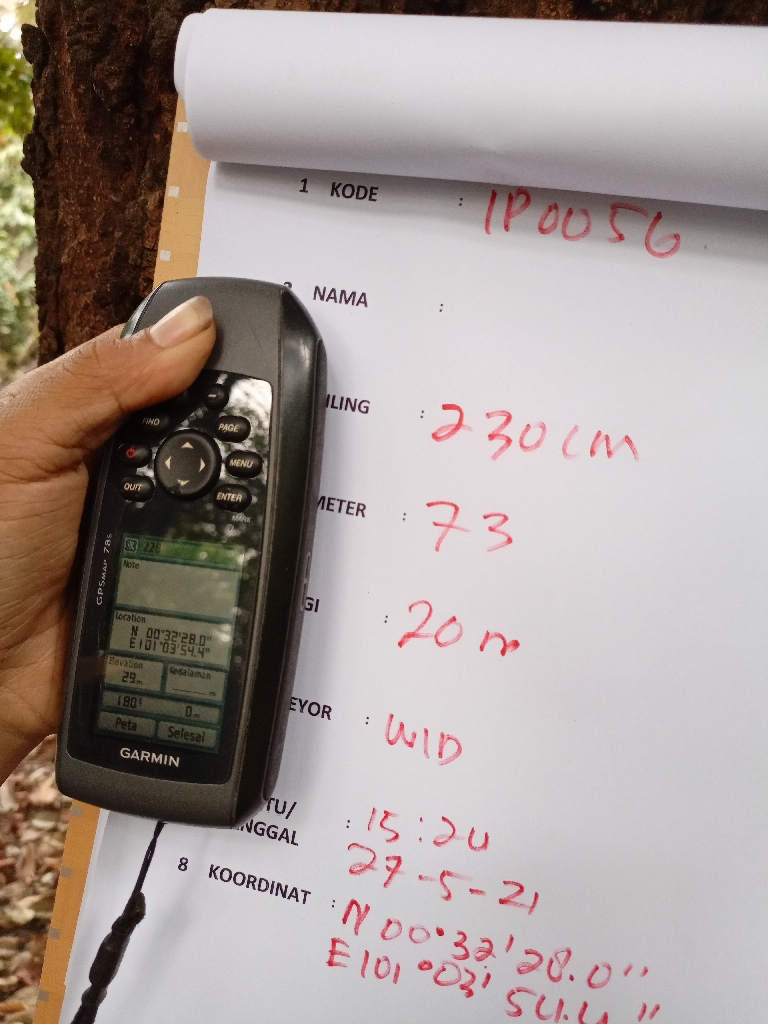 1 KODE : IP0056
NAMA :
ILING : 230 cm
METER : 73
GI : 20 m
EYOR : WID
TU/
NGGAL : 15:24
27-5-21
8 KOORDINAT : N 00°32'28.0"
E 101°03'54.4"
FIND
PAGE
MENU
QUIT
ENTER
MARK
GPSMAP 78s
226
Note
Location
N 00°32'28.0"
E101°03'54.4"
Elevation
Kedalaman
29m
_____m
180°
0m
Peta
Selesai
GARMIN